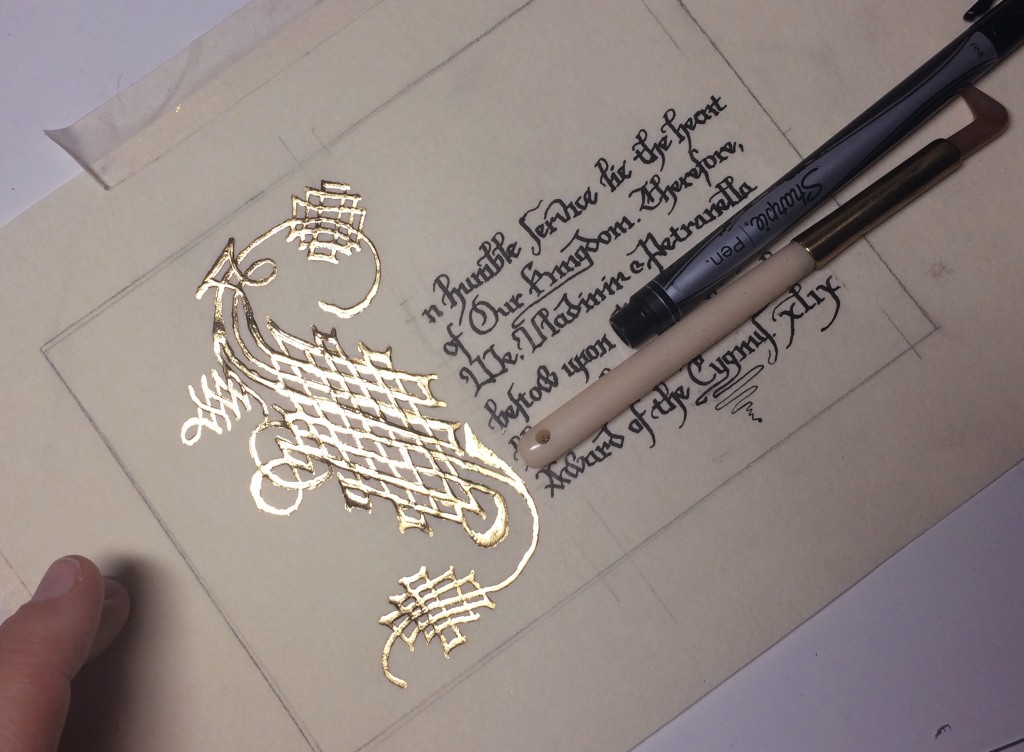 n humble service lie the heart
of Our Kingdom. Therefore,
We, Petranella
bestow upon
Award of the Cygnus xlix
Sharpie. Pen.